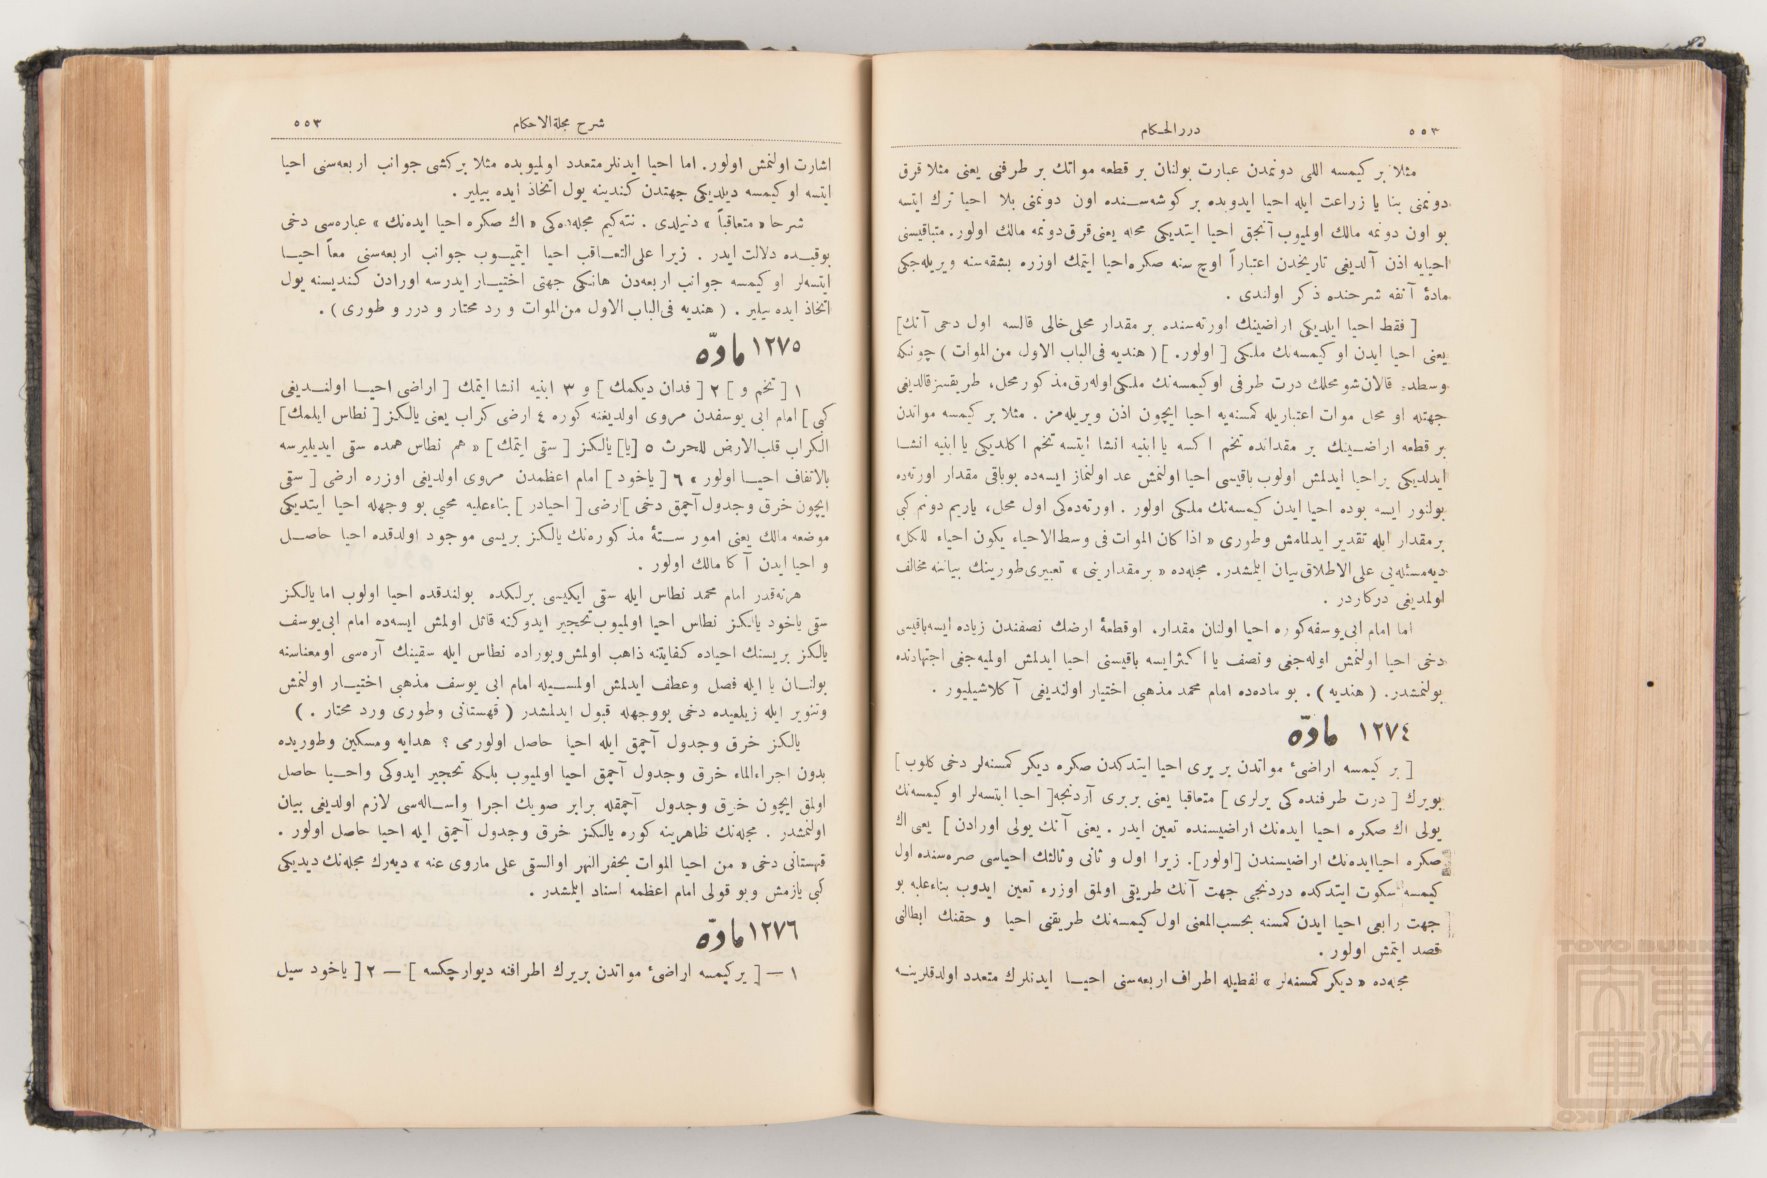 درر الحكام ٥٥٣
مثلا بر كيمسه اللى دونمدن عبارت بولنان بر قطعه مواتك بر طرفنى يعنى مثلا قرق
دونمنى بنا يا زراعت ايله احيا ايدوبده بر كوشه‌سنده اون دونمنى بلا احيا ترك ايتسه
بو اون دونمه مالك اولميوب آنجق احيا ايتديكى محله يعنى قرق دونمه مالك اولور. متباقيسنى
احيايه اذن آلديغى تاريخدن اعتباراً اوچ سنه صكره احيا ايتمك اوزره بشقه‌سنه ويريله‌جكى
مادهٔ آنفه شرحنده ذكر اولندى .
[ فقط احيا ايلديكى اراضينك اورته‌سنده بر مقدار محلى خالى قالسه اول دخى آنك]
يعنى احيا ايدن او كيمسه‌نك ملكى [ اولور. ] ( هنديه فى الباب الاول من الموات ) چونكه
وسطده قالان شو محلك درت طرفى او كيمسه‌نك ملكى اوله‌رق مذكور محل، طريقسز قالديغى
جهتله او محل موات اعتباريله كمسنه‌يه احيا ايچون اذن ويريله‌مز . مثلا بر كيمسه مواتدن
بر قطعه اراضينك بر مقدارنده تخم اكسه يا ابنيه انشا ايتسه تخم اكلديكى يا ابنيه انشا
ايدلديكى ير احيا ايدلمش اولوب باقيسى احيا اولنمش عد اولنماز ايسه‌ده بو باقى مقدار اورته‌ده
بولنور ايسه بوده احيا ايدن كيمسه‌نك ملكى اولور . اورته‌ده‌كى اول محل، ياريم دونم كبى
بر مقدار ايله تقدير ايدلمامش وطورى « اذا كان الموات فى وسط الاحياء يكون احياء للكل»
ديه مسئله‌يى على الاطلاق بيان ايتمشدر. مجله‌ده « بر مقدارينى » تعبيرى طورينك بياننه مخالف
اولمديغى دركاردر .
اما امام ابى يوسفه كوره احيا اولنان مقدار. او قطعهٔ ارضك نصفندن زياده ايسه باقيسى
دخى احيا اولنمش اوله‌جغى و نصف يا اكثر ايسه باقيسنى احيا ايدلمش اولميه‌جغى اجتهادنده
بولنمشدر. ( هنديه ) . بو ماده‌ده امام محمد مذهبى اختيار اولنديغى آكلاشيليور .
١٢٧٤ مادّه
[ بر كيمسه اراضىٔ مواتدن بر يرى احيا ايتدكدن صكره ديكر كمسنه‌لر دخى كلوب ]
بويرك [ درت طرفنده كى يرلرى ] متعاقبا يعنى بربرى آردنجه[ احيا ايتسه‌لر او كيمسه‌نك
يولى اك صكره احيا ايده‌نك اراضيسنده تعين ايدر . يعنى آنك يولى اورادن ] يعنى اك
صكره احيا ايده‌نك اراضيسندن [اولور]. زيرا اول و ثانى و ثالثك احياسى صره‌سنده اول
كيمسه سكوت ايتدكده دردنجى جهت آنك طريقى اولمق اوزره تعين ايدوب بناءعليه بو
جهت رابعى احيا ايدن كمسنه بحسب المعنى اول كيمسه‌نك طريقنى احيا و حقنك ابطالنى
قصد ايتمش اولور .
مجله‌ده « ديكر كمسنه‌لر » لفظيله اطراف اربعه‌سنى احيا ايدنلرك متعدد اولدقلرينه
شرح مجلة الاحكام ٥٥٣
اشارت اولنمش اولور. اما احيا ايدنلر متعدد اولميوبده مثلا بر كشى جوانب اربعه‌سنى احيا
ايتسه او كيمسه ديلديكى جهتدن كندينه يول اتخاذ ايده بيلير .
شرحا « متعاقباً » دنيلدى . نته‌كيم مجله‌ده‌كى « اك صكره احيا ايده‌نك » عباره‌سى دخى
بوقيده دلالت ايدر . زيرا على التعاقب احيا ايتميوب جوانب اربعه‌سنى معاً احيا
ايتسه‌لر او كيمسه جوانب اربعه‌دن هانكى جهتى اختيار ايدرسه اورادن كنديسنه يول
اتخاذ ايده بيلير . ( هنديه فى الباب الاول من الموات و رد محتار و درر و طورى ) .
١٢٧٥ مادّه
١ [ تخم و ] ٢ [ فدان ديكمك ] و ٣ ابنيه انشا ايتمك [ اراضى احيا اولنديغى
كبى ] امام ابى يوسفدن مروى اولديغنه كوره ٤ ارضى كراب يعنى يالكز [ نطاس ايلمك]
الكراب قلب الارض للحرث ٥ [يا] يالكز [ سقى ايتمك ] « هم نطاس همده سقى ايديليرسه
بالاتفاق احيا اولور » ٦ [ ياخود ] امام اعظمدن مروى اولديغى اوزره ارضى [ سقى
ايچون خرق و جدول آچمق دخى ] ارضى [ احيادر ] بناءعليه محيى بو وجهله احيا ايتديكى
موضعه مالك يعنى امور ستهٔ مذكوره‌نك يالكز بريسى موجود اولدقده احيا حاصل
و احيا ايدن آكا مالك اولور .
هرنه‌قدر امام محمد نطاس ايله سقى ايكيسى برلكده بولندقده احيا اولوب اما يالكز
سقى ياخود يالكز نطاس احيا اولميوب تحجير ايدوكنه قائل اولمش ايسه‌ده امام ابى يوسف
يالكز بريسنك احياده كفايتنه ذاهب اولمش و بوراده نطاس ايله سقينك آره‌سى او معناسنه
بولنان يا ايله فصل و عطف ايدلمش اولمسيله امام ابى يوسف مذهبى اختيار اولنمش
وتنوير ايله زيلعيده دخى بووجهله قبول ايدلمشدر ( قهستانى وطورى ورد محتار . )
يالكز خرق وجدول آچمق ايله احيا حاصل اولورمى ؟ هدايه ومسكين وطوريده
بدون اجراء الماء خرق وجدول آچمق احيا اولميوب بلكه تحجير ايدوكى واحيا حاصل
اولمق ايچون خرق وجدول آچمقله برابر صويك اجرا واساله‌سى لازم اولديغى بيان
اولنمشدر . مجله‌نك ظاهرينه كوره يالكز خرق وجدول آچمق ايله احيا حاصل اولور .
قهستانى دخى « من احيا الموات بحفر النهر او السقى على ماروى عنه » ديه‌رك مجله‌نك ديديكى
كبى يازمش وبو قولى امام اعظمه اسناد ايتمشدر .
١٢٧٦ مادّه
١ — [ بر كيمسه اراضىٔ مواتدن بر يرك اطرافنه ديوار چكسه ] — ٢ [ ياخود سيل
TOYO BUNKO
東洋
文庫